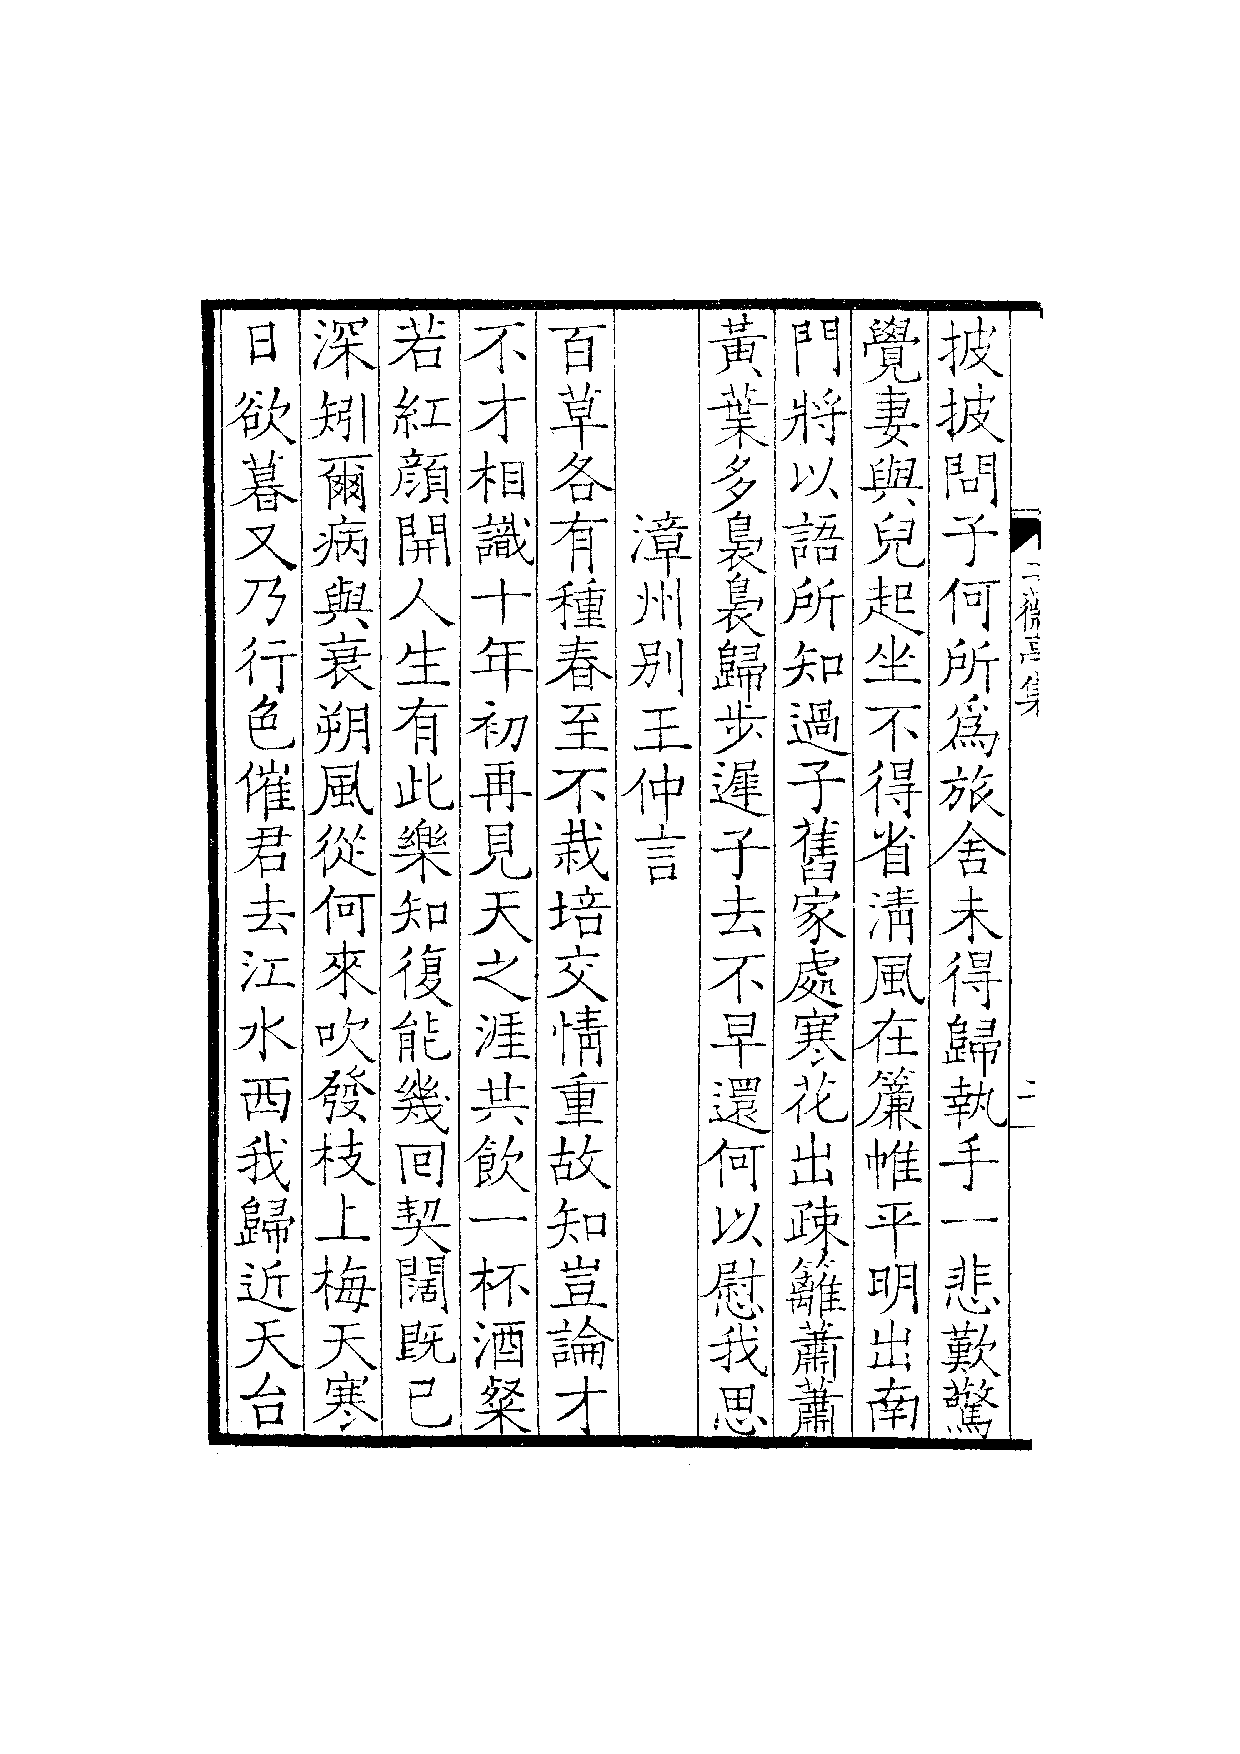 披披問子何所爲旅舍未得歸執手一悲歎驚
覺妻與兒起坐不得省淸風在簾帷平明出南
門將以語所知過子舊家處寒花出疎籬蕭蕭
黃葉多裊裊歸步遲子去不早還何以慰我思
漳州別王仲言
百草各有種春至不栽培交情重故知豈論才
不才相識十年初再見天之涯共飮一杯酒粲
若紅顔開人生有此樂知復能幾回契闊既已
深矧爾病與衰朔風從何來吹發枝上梅天寒
日欲暮又乃行色催君去江水西我歸近天台